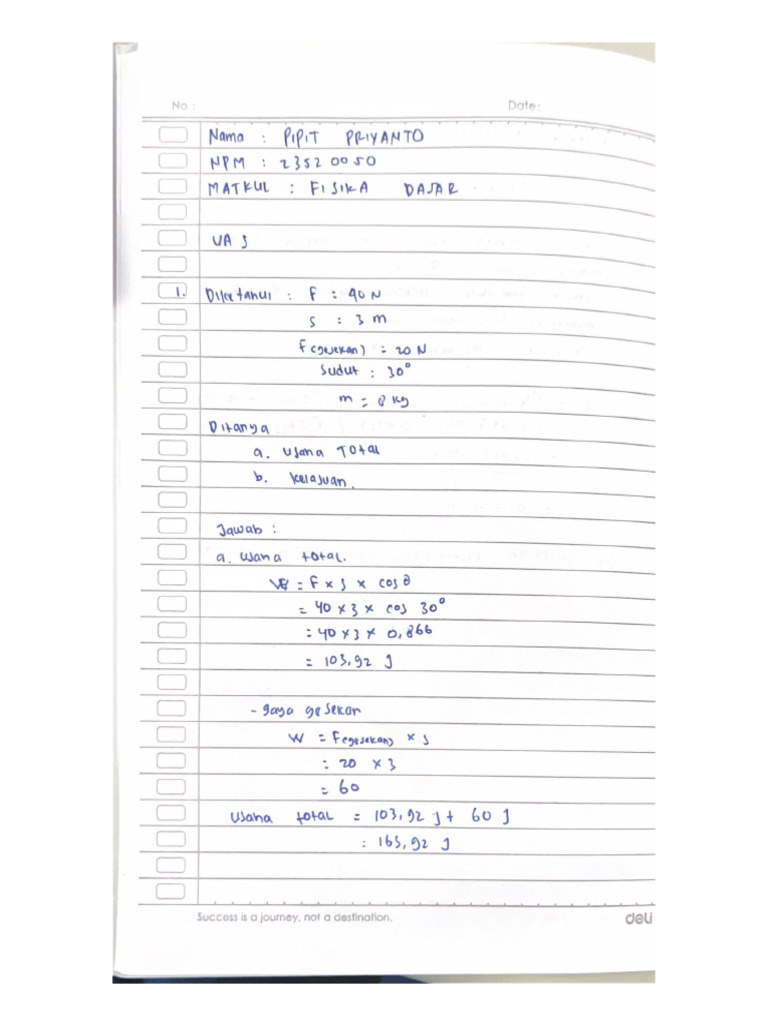 No : Date :
Nama : PIPIT PRIYANTO
NPM : 23520050
MATKUL : FISIKA DASAR
UAS
1. Diketahui : F : 40 N
s : 3 m
F(gesekan) = 20 N
Sudut : 30°
m = 8 kg
Ditanya
a. Usaha TOTAL
b. Kelajuan.
Jawab :
a. Usaha total.
W = F x s x cos θ
= 40 x 3 x cos 30°
= 40 x 3 x 0,866
= 103,92 J
- gaya gesekan
W = F(gesekan) x s
= 20 x 3
= 60
Usaha total = 103,92 J + 60 J
= 163,92 J
Success is a journey, not a destination. deli